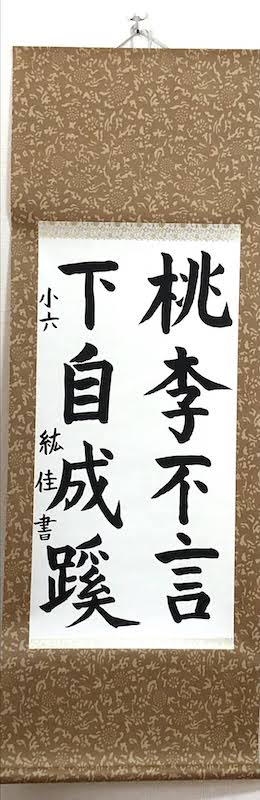 桃李不言
下自成蹊
小六 紘佳書